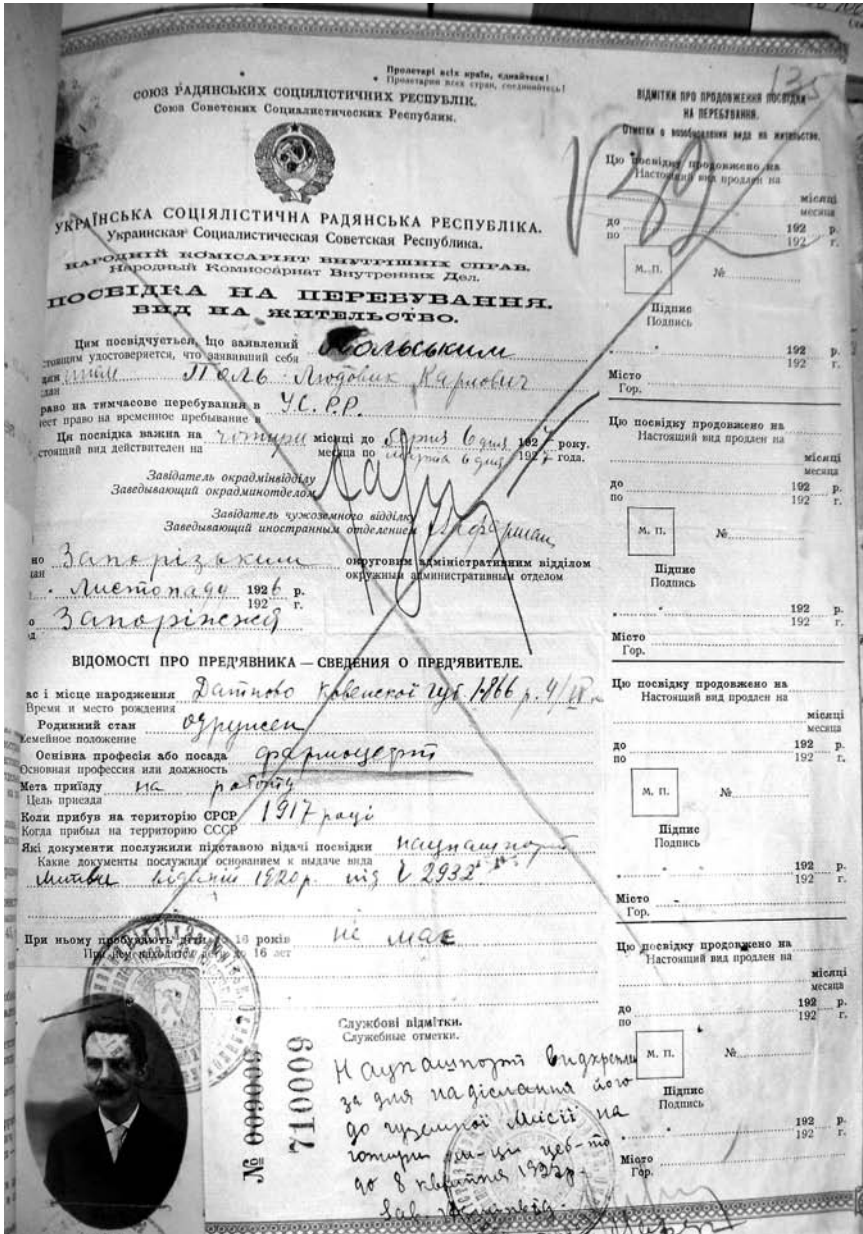 Пролетарі всіх країн, єднайтеся!
Пролетарии всех стран, соединяйтесь!
СОЮЗ РАДЯНСЬКИХ СОЦІЯЛІСТИЧНИХ РЕСПУБЛІК.
Союз Советских Социалистических Республик.
УКРАЇНСЬКА СОЦІЯЛІСТИЧНА РАДЯНСЬКА РЕСПУБЛІКА.
Украинская Социалистическая Советская Республика.
НАРОДНІЙ КОМІСАРІЯТ ВНУТРІШНІХ СПРАВ.
Народный Комиссариат Внутренних Дел.
ПОСВІДКА НА ПЕРЕБУВАННЯ.
ВИД НА ЖИТЕЛЬСТВО.
Цим посвідчується, що заявлений
стоящим удостоверяется, что заявивший себя
Поль Людовик Карлович
раво на тимчасове перебування в У.С.Р.Р.
еет право на временное пребывание в
Ця посвідка важна на чотири місяці до 6 дня 1927 року.
стоящий вид действителен на месяца по марта 6 дня 1927 года.
Завідатель окрадмінвідділу
Заведывающий окрадминотделом
Завідатель чужоземного відділку
Заведывающий иностранным отделением
но Запорізьким округовим адміністративним відділом
окружным административным отделом
Листопаду 1926 р.
192 г.
Запоріжжя
ВІДОМОСТІ ПРО ПРЕД'ЯВНИКА — СВЕДЕНИЯ О ПРЕД'ЯВИТЕЛЕ.
ас і місце народження Датново Ковенской губ. 1866 р. 4/
Время и место рождения
Родинний стан одружен
Семейное положение
Основна професія або посада фармоцевт
Основная профессия или должность
Мета приїзду на работу
Цель приезда
Коли прибув на територію СРСР 1917 році
Когда прибыл на территорию СССР
Які документи послужили підставою видачі посвідки нацпашпорт
Какие документы послужили основанием к выдаче вида
Литви 1920 р. під № 2932
При ньому пробувають діти до 16 років не має
При нем находится дети до 16 лет
Службові відмітки.
Служебные отметки.
Нацпашпорт
за для надіслання його
до чуземної Місії на
чотири
до 8 квітня
№ 009009
710009
135
ВІДМІТКИ ПРО ПРОДОВЖЕННЯ ПОСВІДКИ
НА ПЕРЕБУВАННЯ.
Отметки о возобновлении вида на жительство.
Цю посвідку продовжено на
Настоящий вид продлен на
місяці
месяца
до 192 р.
по 192 г.
М. П. №
Підпис
Подпись
192 р.
192 г.
Місто
Гор.
Цю посвідку продовжено на
Настоящий вид продлен на
місяці
месяца
до 192 р.
по 192 г.
М. П. №
Підпис
Подпись
192 р.
192 г.
Місто
Гор.
Цю посвідку продовжено на
Настоящий вид продлен на
місяці
месяца
до 192 р.
по 192 г.
М. П. №
Підпис
Подпись
192 р.
192 г.
Місто
Гор.
Цю посвідку продовжено на
Настоящий вид продлен на
місяці
месяца
до 192 р.
по 192 г.
М. П. №
Підпис
Подпись
192 р.
192 г.
Місто
Гор.